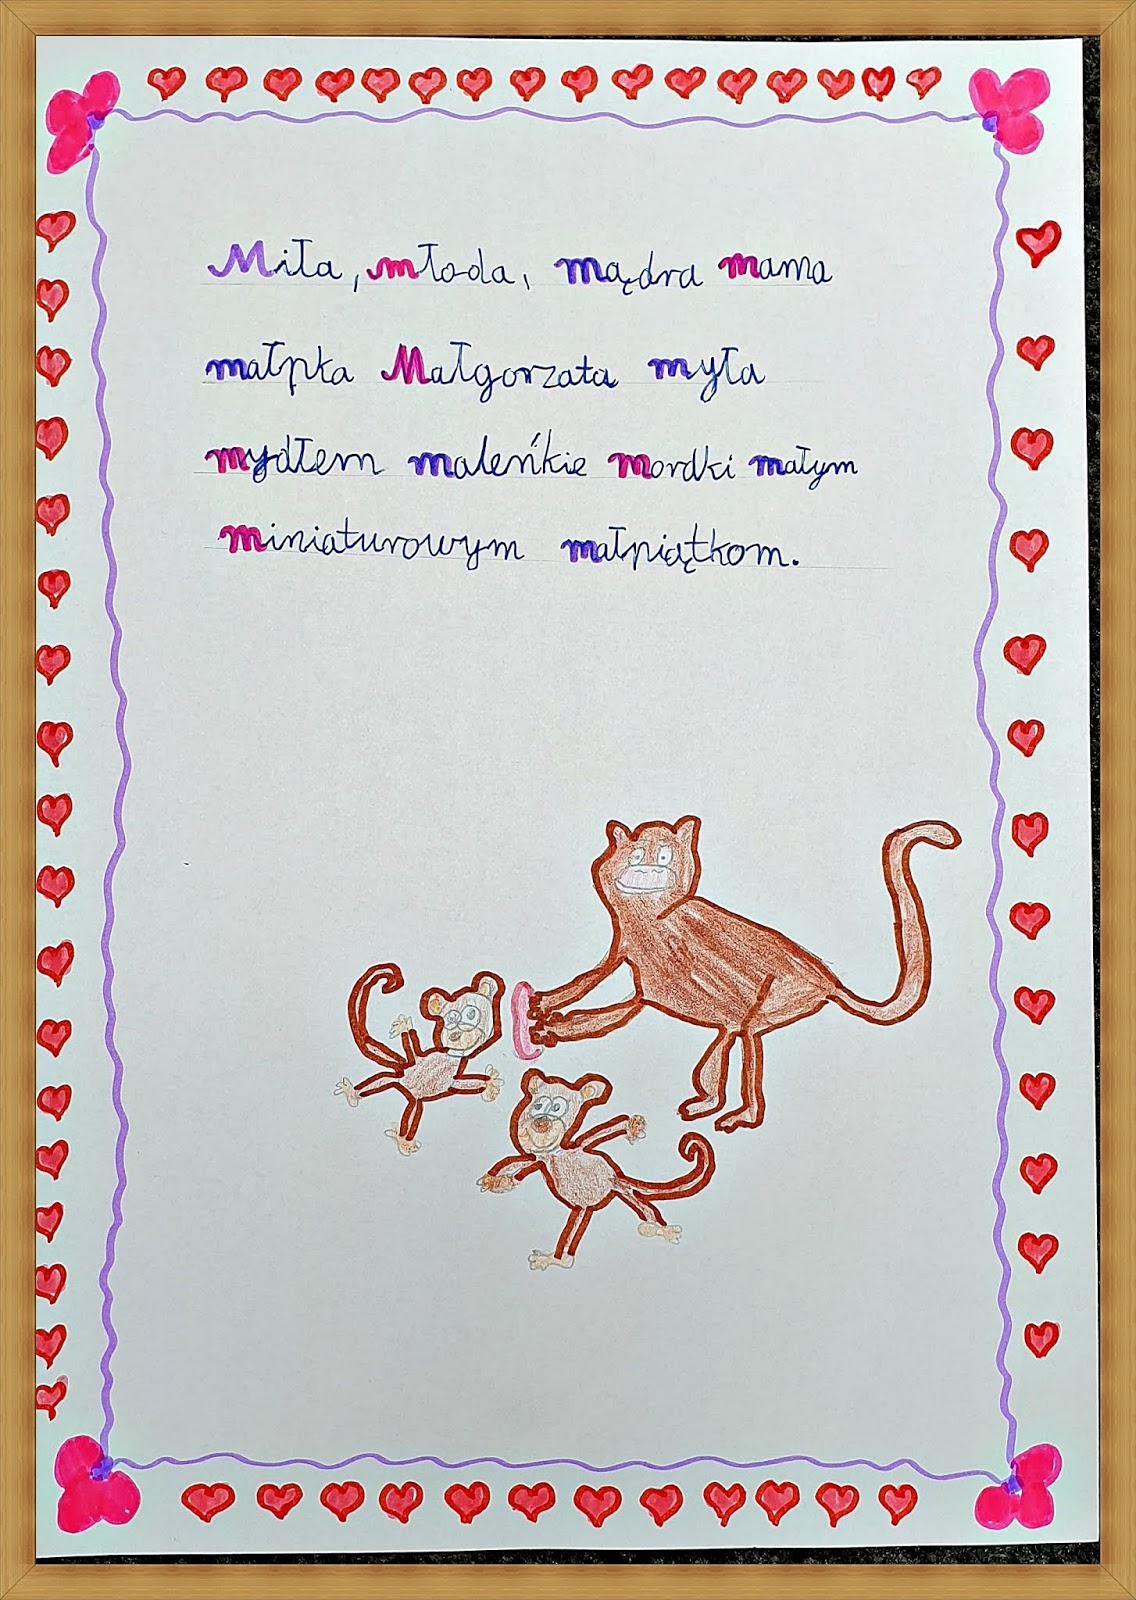 Miła, młoda, mądra mama
małpka Małgorzata myła
mydłem maleńkie mordki małym
miniaturowym małpiątkom.